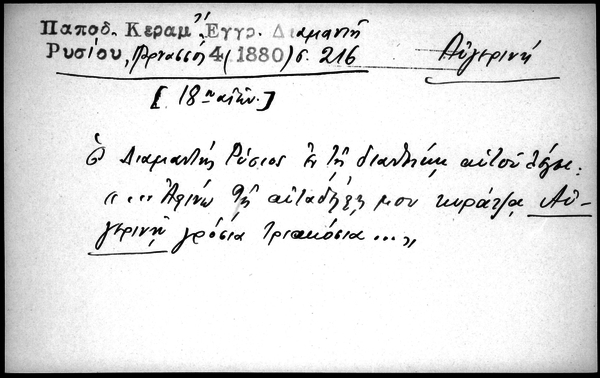 Παποδ. Κεραμ. Ἔγγρ. Διαμαντῆ
Ρυσίου, Παρνασσός 4 (1880) σ. 216
Αὐγερινή
[18ου αἰῶν.]
Ὁ Διαμαντῆς Ρύσιος ἐν τῇ διαθήκῃ αὐτοῦ λέγει:
«...Ἀφίνω τῆς αὐταδέλφης μου κυράτζα Αὐ-
γερινῆ γρόσια τριακόσια...»